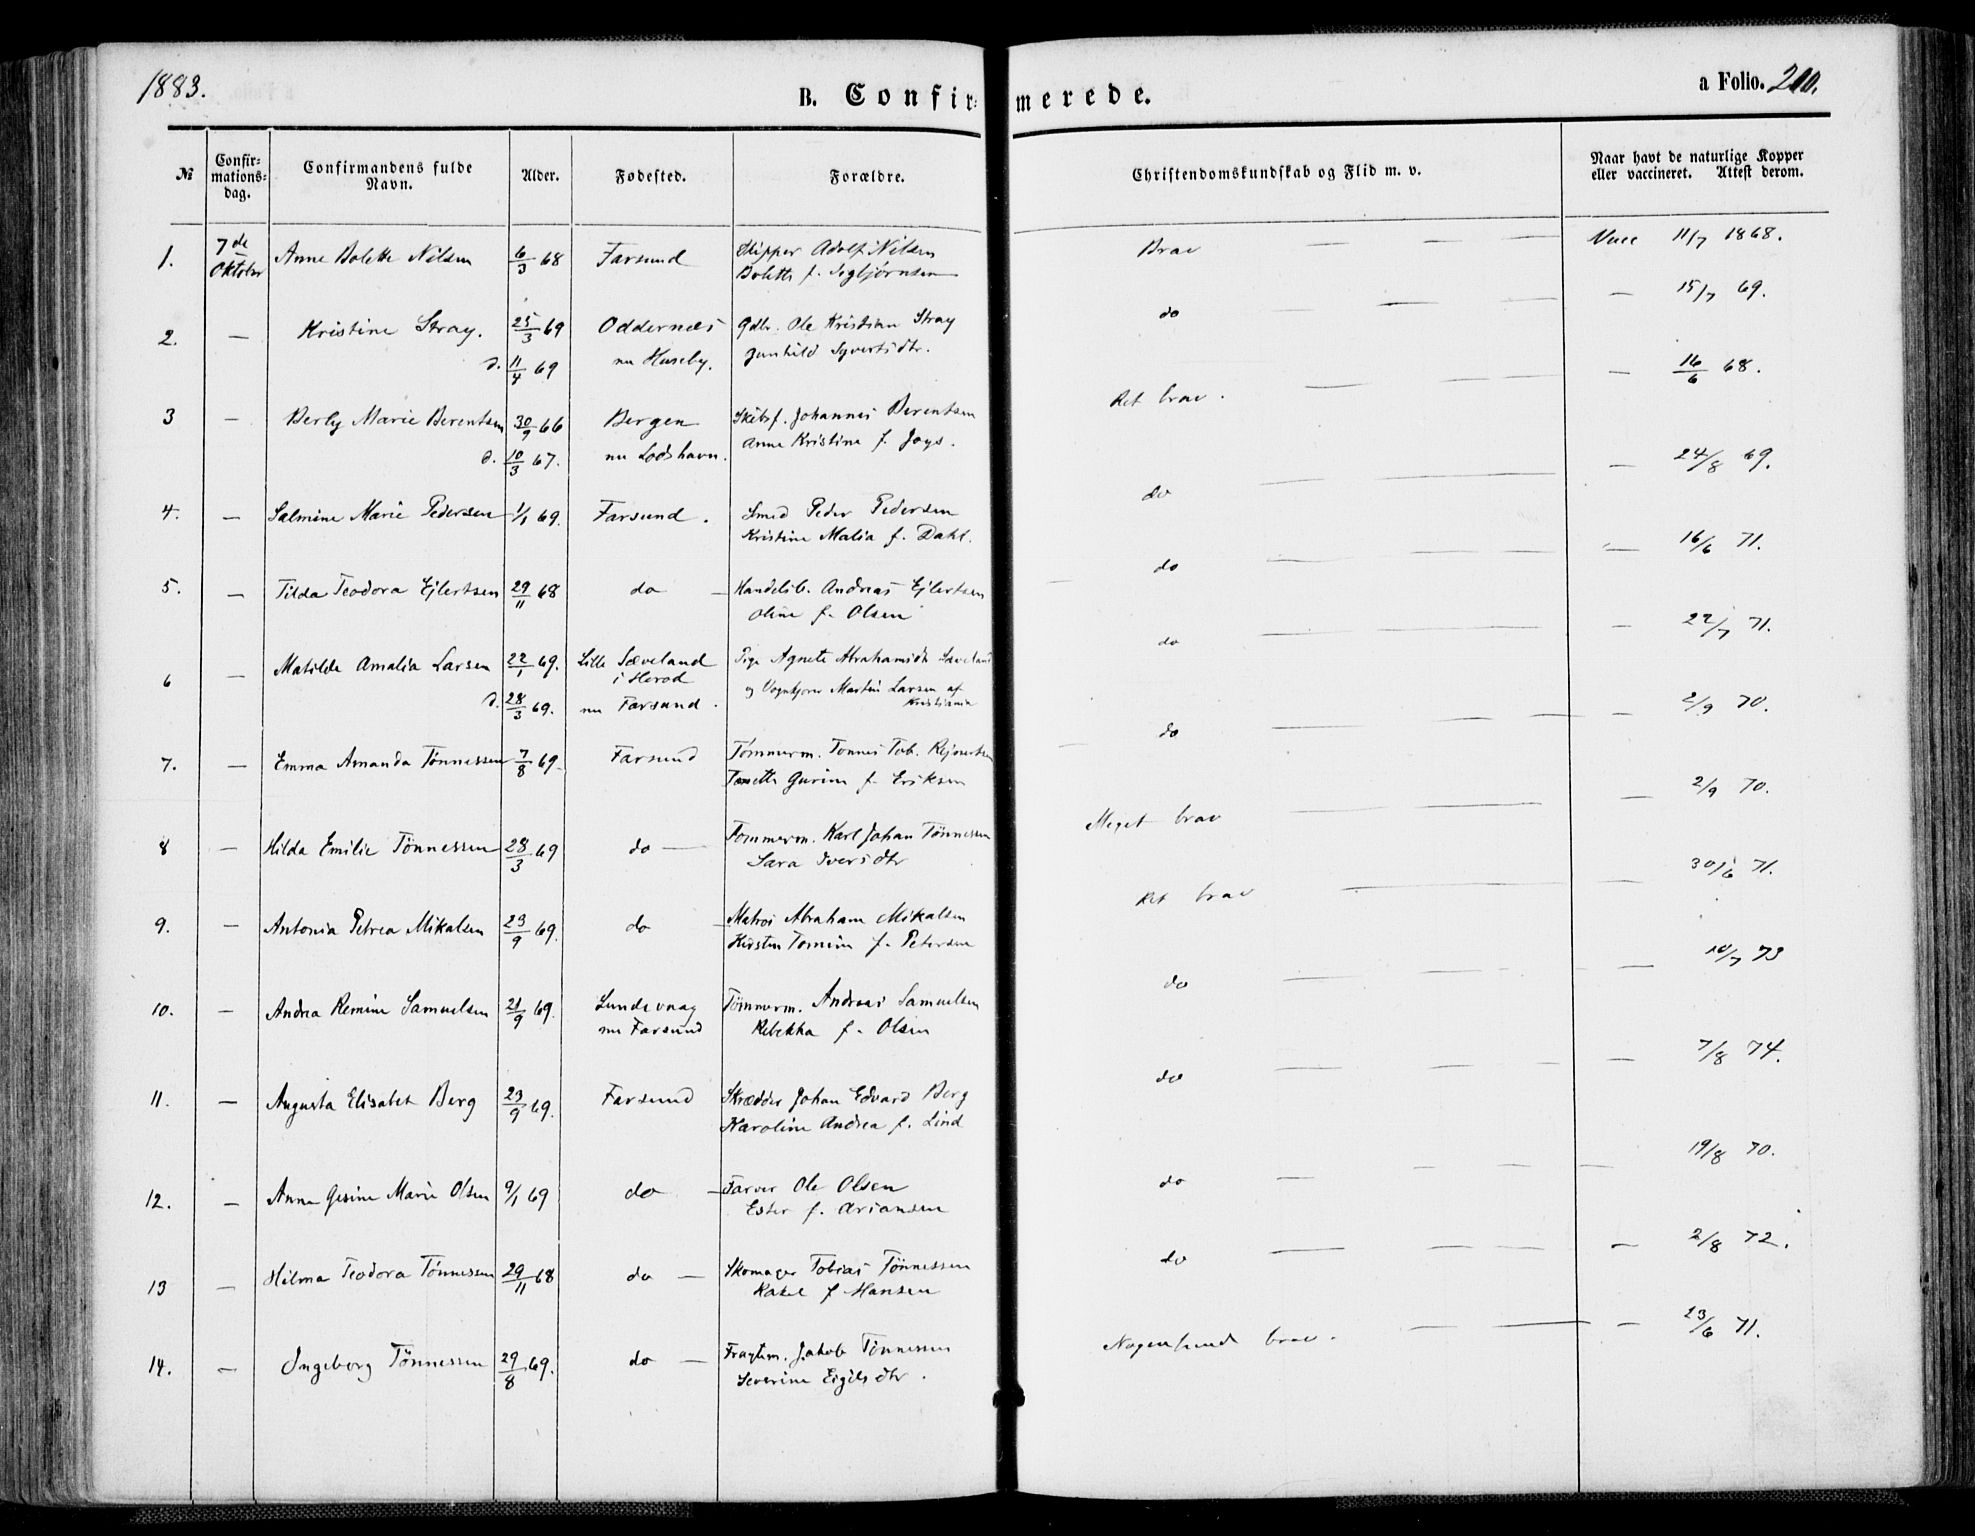 1883.
B. Confir-
merede.
a Folio. 210.
№
Confir-
mations-
dag.
Confirmandens fulde
Navn.
Alder.
Fødested.
Forældre.
Christendomskundskab og Flid m. v.
Naar havt de naturlige Kopper
eller vaccineret. Attest derom.
1. 7de Oktober Anne Bolette Nilsen 6/3 68 Farsund Skipper Adolf Nilsen Brav — — — Vacc 11/7 1868.
Bolette f. Segbjørnsen
2. — Kristine Stray. 25/3 69 Oddernæs Gdbr. Ole Kristian Stray do — — — — 15/7 69.
d. 11/4 69 nu Huseby. Gunhild Syvertsdtr.
3 — Berly Marie Berentsen 30/9 66 Bergen Skibsf. Johannes Berentsen Ret brav. — — — — 16/6 68.
d. 10/3 67. nu Lodshavn. Anne Kristine f. Joys.
4. — Salmine Marie Pedersen 1/1 69. Farsund. Smed Peder Pedersen do — — — — 24/8 69.
Kristine Malia f. Dahl.
5. — Tilda Teodora Ejlertsen 29/11 68 do — Handelsb. Andreas Ejlertsen do — — — — 16/6 71.
Oline f. Olsen
6 — Matilde Amalia Larsen 22/1 69. Lille Sæveland Pige Agnete Abrahamsdtr Sæveland do — — — — 22/7 71.
i Herod
d. 28/3 69. nu Farsund. og Vognkjører Martin Larsen af
Kristiania
7. — Emma Amanda Tønnessen 7/8 69. Farsund Tømmerm. Tønnes Tob. Rejnertsen do — — — — 2/9 70.
Gurine f. Eriksen
8 — Hilda Emilie Tönnessen 28/3 69 do — Tømmerm. Karl Johan Tönnessen Meget brav — — — — 2/9 70.
Sara Iversdtr
9. — Antonia Petrea Mikalsen 23/9 69. do — Matros Abraham Mikalsen Ret brav — — — 30/6 71.
Kirsten Tomine f. Petersen
10. — Andrea Remine Samuelsen 21/9 69. Lundevaag Tømmerm. Andreas Samuelsen do — — — — 10/7 73
nu Farsund Rebekka f. Olsen
11. — Augusta Elisabet Berg 23/9 69. Farsund Skrædder Johan Edvard Berg do — — — — 7/8 74.
Karoline Andrea f. Lind
12. — Anne Gesine Marie Olsen 9/1 69 do — Farver Ole Olsen do — — — — 19/8 70.
Ester f. Ariansen
13 — Hilma Teodora Tönnessen 29/11 68 do — Skomager Tobias Tönnessen do — — — — 2/8 72.
Rakel f Hansen
14. — Ingeborg Tönnessen 29/8 69. do — Fragtm. Jakob Tönnessen Nogenlunde brav. — — — 23/6 71.
Severine Eigilsdtr.